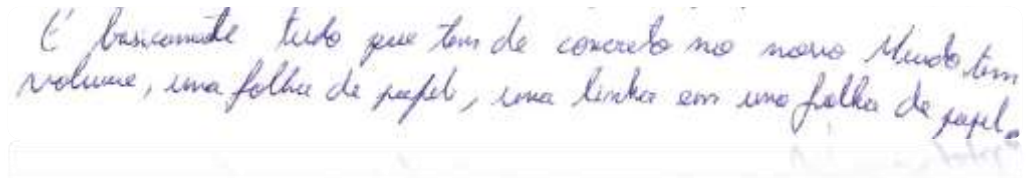 É basicamente tudo que tem de concreto no nosso Mundo tem
volume, uma folha de papel, uma linha em uma folha de papel.